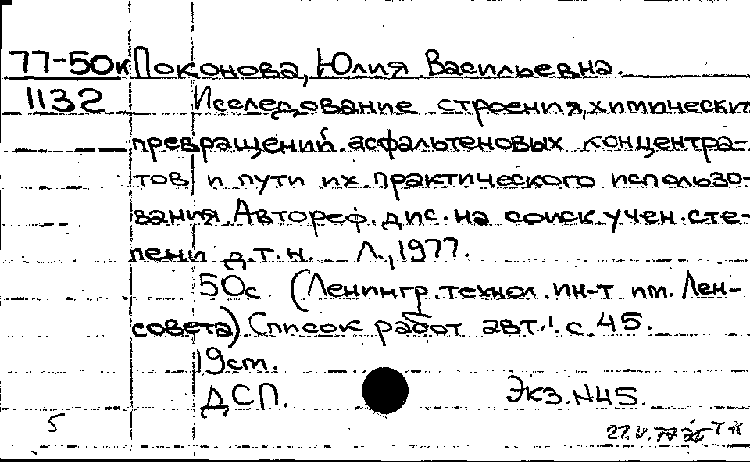 77-50к Поконова, Юлия Васильевна.
1132 Исследование строения, химически
превращений асфальтеновых концентра-
тов и пути их практического использо-
вания. Автореф. дис. на соиск. учен. сте-
пени д.т.н. Л., 1977.
50с. (Ленингр. технол. ин-т им. Лен-
совета) Список работ авт.: с. 45.
19см.
ДСП. Экз. N45.
5